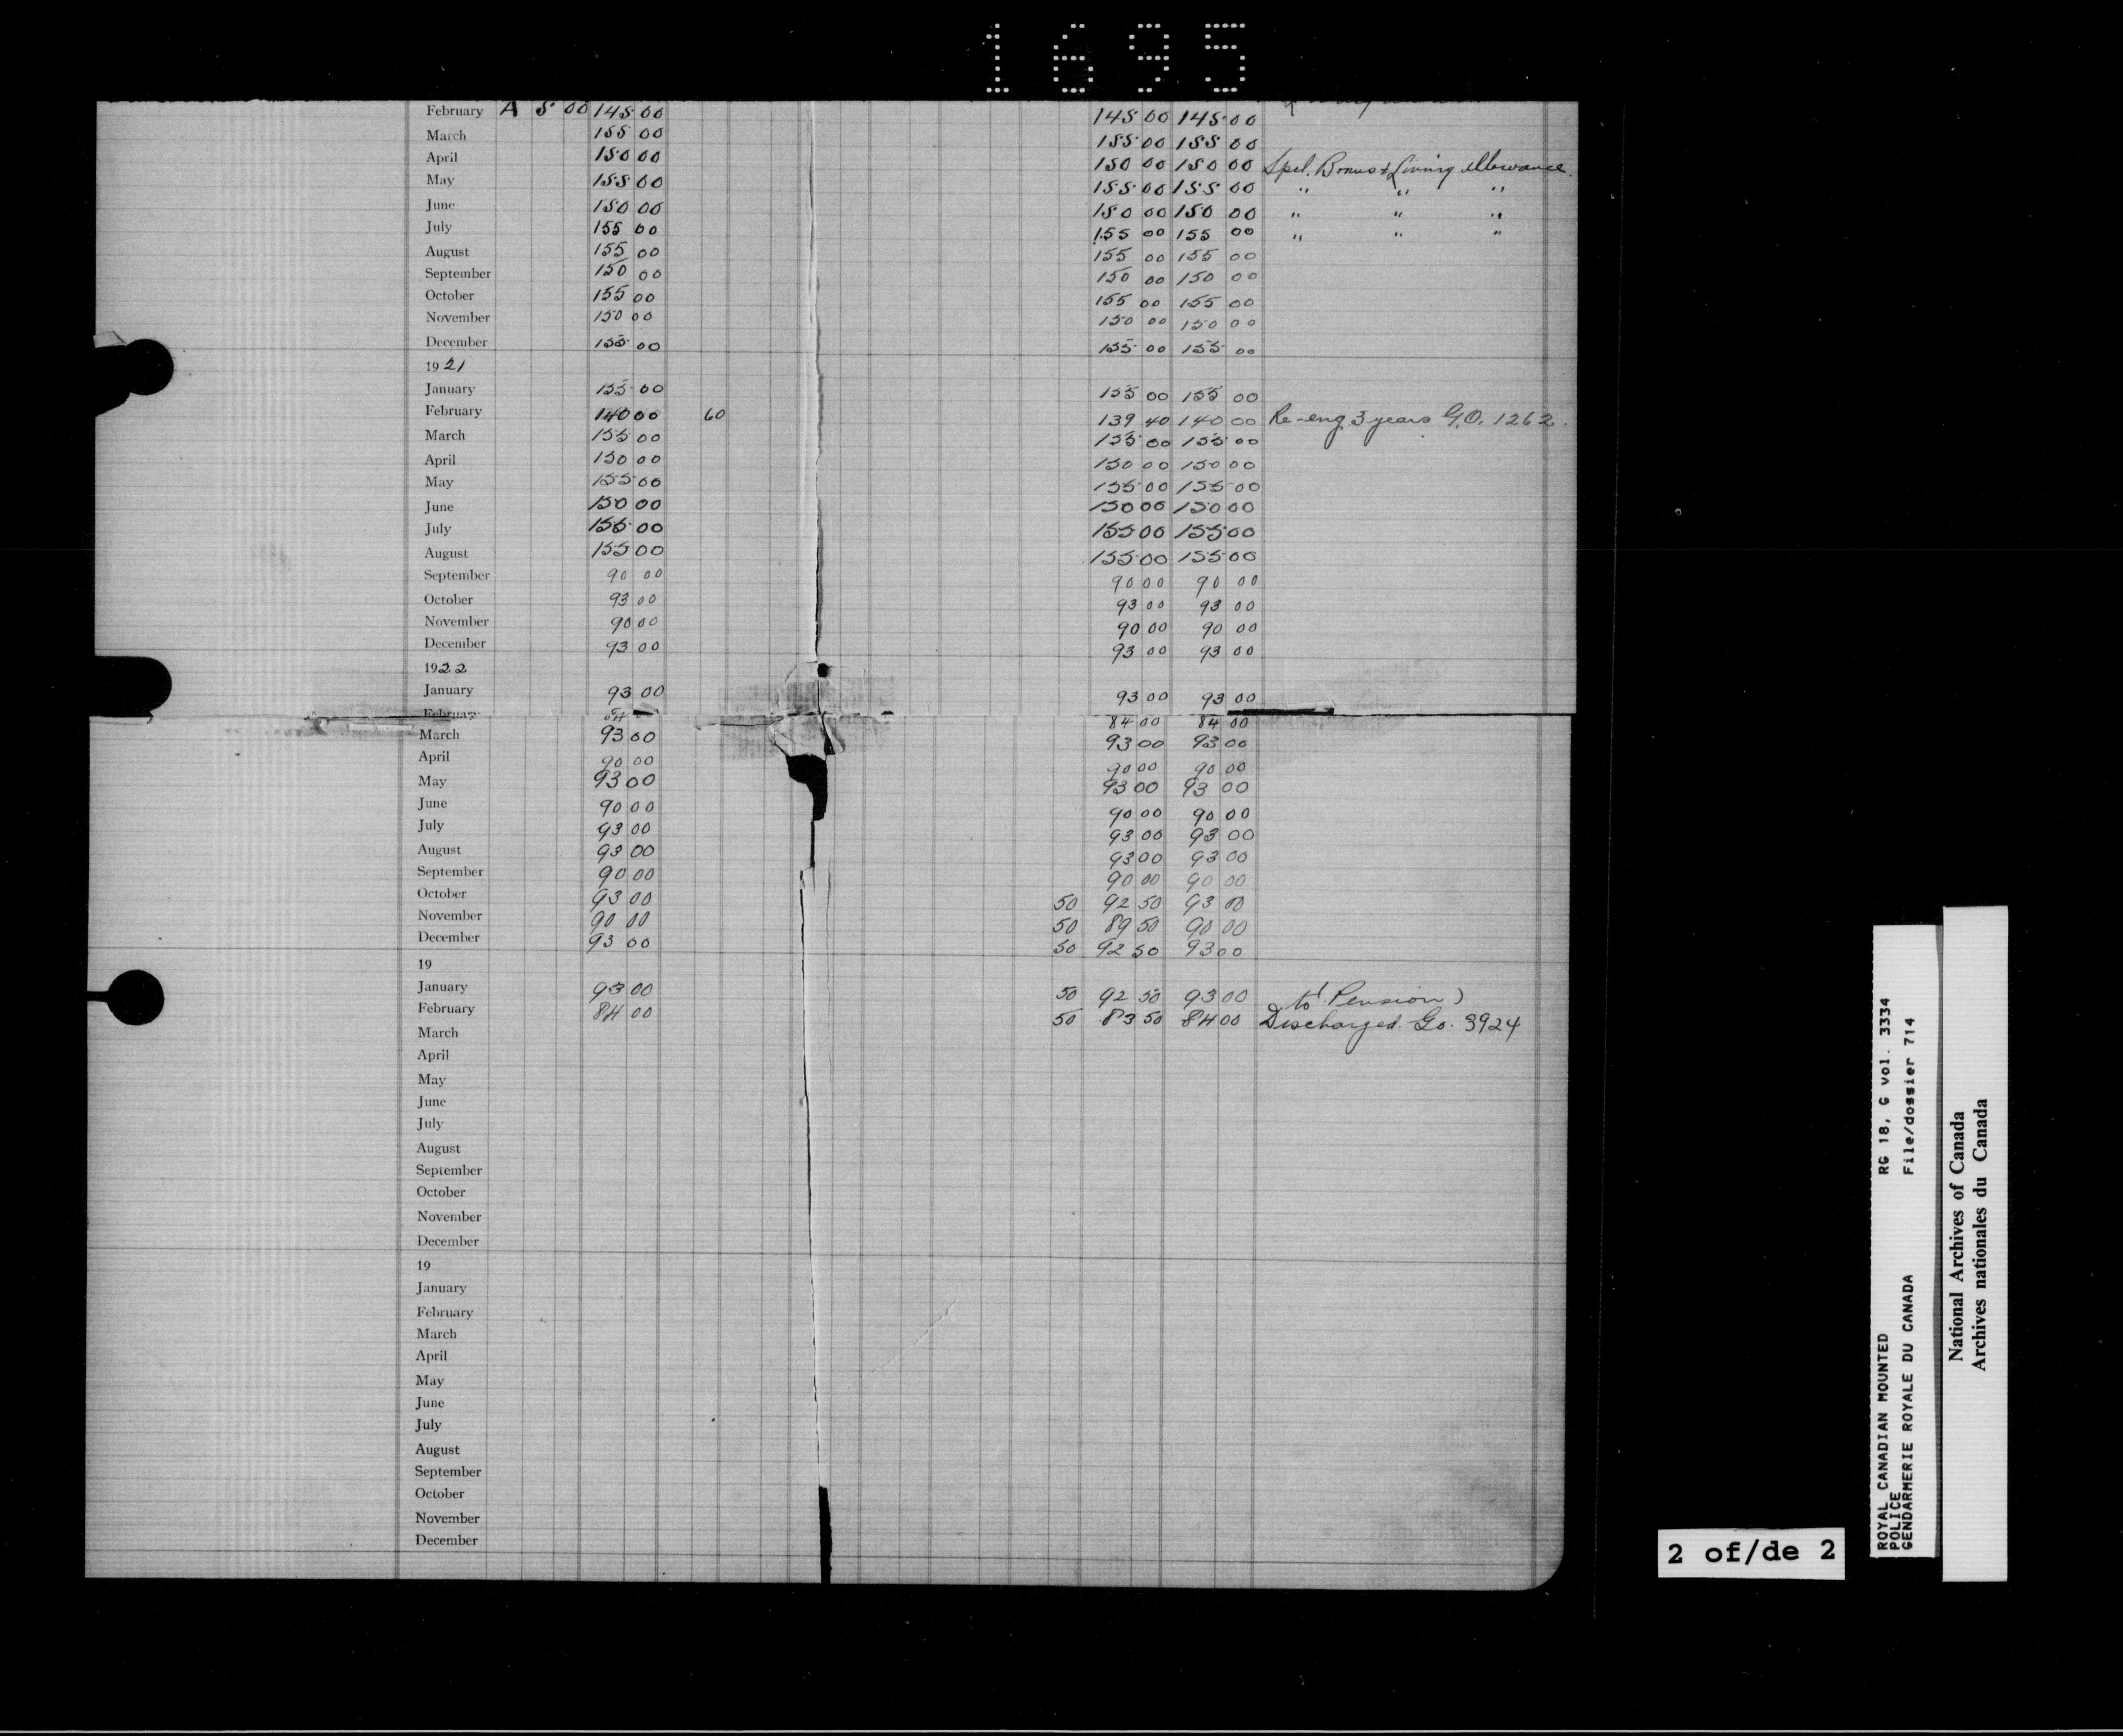 1695
February A 5 00 145 00 145 00 145 00
March 155 00 155 00 155 00
April 150 00 150 00 150 00 Spcl. Bonus & Living Allowance.
May 155 00 155 00 155 00 " " "
June 150 00 150 00 150 00 " " "
July 155 00 155 00 155 00 " " "
August 155 00 155 00 155 00
September 150 00 150 00 150 00
October 155 00 155 00 155 00
November 150 00 150 00 150 00
December 155 00 155 00 155 00
1921
January 155 00 155 00 155 00
February 140 00 60 139 40 140 00 Re-eng 3 years G.O. 1262.
March 155 00 155 00 155 00
April 150 00 150 00 150 00
May 155 00 155 00 155 00
June 150 00 150 00 150 00
July 155 00 155 00 155 00
August 155 00 155 00 155 00
September 90 00 90 00 90 00
October 93 00 93 00 93 00
November 90 00 90 00 90 00
December 93 00 93 00 93 00
1922
January 93 00 93 00 93 00
February 84 84 00 84 00
March 93 00 93 00 93 00
April 90 00 90 00 90 00
May 93 00 93 00 93 00
June 90 00 90 00 90 00
July 93 00 93 00 93 00
August 93 00 93 00 93 00
September 90 00 90 00 90 00
October 93 00 50 92 50 93 00
November 90 00 50 89 50 90 00
December 93 00 50 92 50 93 00
19
January 93 00 50 92 50 93 00 to Pension)
February 84 00 50 83 50 84 00 Discharged. Go. 3924
March
April
May
June
July
August
September
October
November
December
19
January
February
March
April
May
June
July
August
September
October
November
December
2 of/de 2
ROYAL CANADIAN MOUNTED RG 18, G vol. 3334
POLICE
GENDARMERIE ROYALE DU CANADA File/dossier 714
National Archives of Canada
Archives nationales du Canada